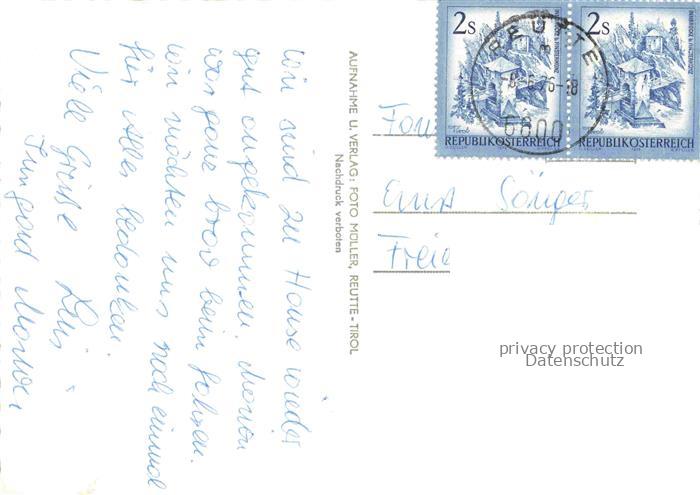 wir sind zu Hause wieder
gut angekommen. Marion
war ganz brav beim fahren.
wir möchten uns noch einmal
für Alles bedanken.
Viele Grüße
Irmgard Marion
AUFNAHME U. VERLAG: FOTO MÜLLER, REUTTE-TIROL
Nachdruck verboten
2s
REPUBLIK ÖSTERREICH
2s
REPUBLIK ÖSTERREICH
REUTTE
6600
Fam
Ernst Sänger
Freie
privacy protection
Datenschutz